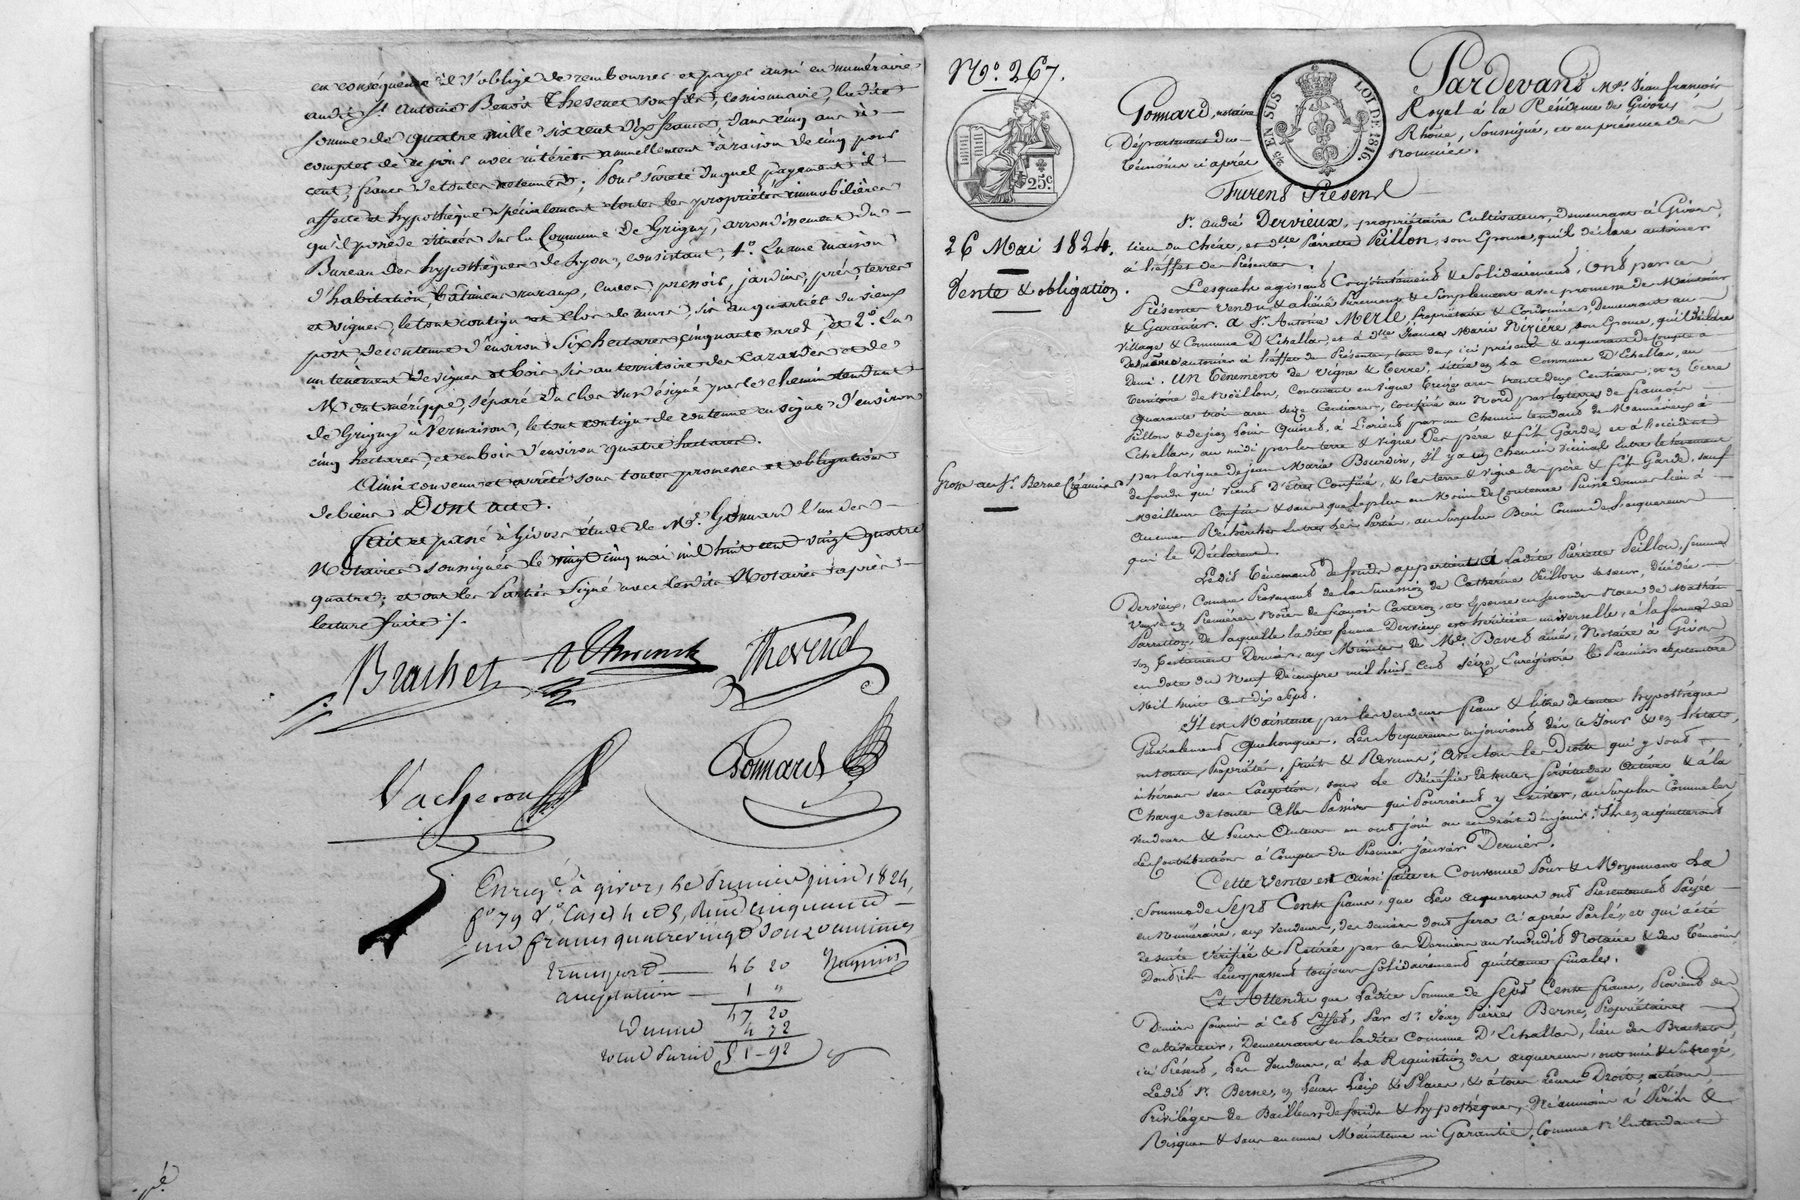 en conséquence il s'oblige de rembourser et payer aussi en numéraire
audit Sr. Antoine Benoit Thevenet son fils, cessionnaire, ladite
somme de quatre mille six cent dix francs dans cinq ans à
compter de ce jour avec intérêts annuellement à raison de cinq pour
cent, francs de toutes retenues; Pour sureté duquel payement il
affecte et hypothèque spécialement toutes les propriétés immobilières
qu'il possède situées sur la Commune de Grigny, arrondissement du
Bureau des hypothèques de Lyon, consistant, 1.º En une maison
d'habitation, bâtimens ruraux, cuves, pressoir, jardins, prés, terres
et vignes, le tout contigu et clos de murs, sis au quartier du vieux
port de contenue d'environ Six hectares cinquante ares, et 2.º En
un tènement de vignes et bois sis au territoire des Cazardes et de
séparé du clos sus désigné par le chemin tendant
de Grigny à Vernaison, le tout contigu de contenue en vignes d'environ
cinq hectares, et en bois d'environ quatre hectares.
Ainsi convenu et arrêté sous toutes promesses et obligations
de biens Dont acte.
Fait et passé à Givors étude de Me. Gonnard l'un des
Notaires soussignés le vingt cinq mai mil huit cent vingt quatre
quatre; et ont les Parties signé avec lesdits Notaires après
lecture faite ./.
Brachet Thevenet
Vacheron Gonnard
Enreg.é à givors, le Premier juin 1824,
fo 79 Vo. Cases 4 et 5, Reçu Cinquante
un francs quatre vingt douze centimes
transport 46 20
acceptation 1 "
47 20
Dixième 4 72
total Parvil 51-92
N.º 267.
25c
26 Mai 1824.
Vente & obligation.
Grosse au Sr. Berne Créancier
EN SUS
LOI DE 1816.
Pardevant Me. Jean françois
Gonnard, notaire Royal à la Résidence de Givors
Département du Rhône, Soussigné, et en présence des
témoins ci après Nommés.
Furent Présens
Sr. André Dervieux, propriétaire Cultivateur, Demeurant à Givors,
lieu du Chêne, et Dlle Pierrette Peillon, son Epouse, qu'il déclare autoriser
à l'effet des Présentes.
Lesquels agissant Conjointement & Solidairement, Ont par ces
Présentes Vendu & aliéné Purement & Simplement avec promesse de Maintenir
& Garantir. A Sr. Antoine Merle Propriétaire & Cordonnier, Demeurant au
Village & Commune D'Echallas, et à Dlle Jeanne Marie Rézière, son Epouse, qu'il déclare
de même autoriser à l'effet des Présentes, tous deux ici présens & acquéreurs de Compte à
demi. Un Tènement de Vigne & Terre, situé en la Commune D'Echallas, au
territoire de Noëllon, Contenant en vigne Treize ares trente deux Centiares, et en Terre
Quarante trois ares seize Centiares, confiné au Nord par les terres de françois
Peillon & de jean Louis Quinet, à L'orient par un Chemin tendant de Manévieux à
Echallas, au midi par les terre & vigne Des père & fils Garde, et à l'occident
par la vigne de jean Marie Bourdin, Il y a un Chemin vicinal entre le tènement
de fonds qui vient D'être Confiné, & les terre & vigne des père & fils Garde, sauf
Meilleurs Confins & sans que le plus ou Moins de Contenue Puisse donner lieu à
Aucunes Recherches entre les Parties, au Surplus Bien Connu des acquéreurs
qui le Déclarent.
Ledit Tènement de fonds appartient à Ladite Pierrette Peillon, femme
Dervieux, Comme Provenant de la Succession de Catherine Peillon sa soeur, Décédée
Veuve en Premières Noces de françois Carteron, et Epouse en secondes Noces de Mathieu
Parration, de laquelle ladite femme Dervieux est héritière universelle, à la forme de
son testament Dernier, aux Minutes de Me. Baves ainé, Notaire à Givors
en date du Neuf Décembre mil huit Cent Seize, Enregistré le Premier Septembre
Mil huit Cent Dix sept.
Il est Maintenu par les vendeurs franc & libre de toutes hypothèques
Généralement Quelconques. Les Acquéreurs en jouiront dès ce Jour & en l'état,
en toute Propriété, fruits & Revenus; Avec tous les Droits qui y sont
inhérens sans Exception, sous Le Bénéfice de toutes Servitudes Actives & à la
Charge de toutes Celles Passives qui Pourroient y Exister, au Surplus Comme les
Vendeurs & Leurs Auteurs en ont joui ou eu droit d'en jouir. Ils en acquitteront
Les Contributions à Compter du Premier Janvier Dernier.
Cette Vente est ainsi faite et Convenue Pour & Moyennant La
Somme de Sept Cents francs, que Les acquéreurs ont Présentement Payée
en Numéraire, aux Vendeurs, de deniers dont sera ci après Parlé, et qui a été
de suite Vérifiée & Retirée par ces Derniers au vu dudit Notaire & des Témoins
Dont ils Leur passent toujours solidairement quittance finale.
Et Attendu que ladite Somme de Sept Cents francs, Provient de
Deniers fournis à Ces Effets, Par Sr. Jean Pierre Berne, Propriétaire
Cultivateur, Demeurant en ladite Commune D'Echallas, lieu des Brachets,
ici Présent, Les Vendeurs, à La Réquisition des acquéreurs, ont mis & Subrogé,
Ledit Sr. Berne, en Leurs Lieux & Places, & à tous Leurs Droits, actions
Privilèges de Bailleurs de fonds & hypothèques, Néanmoins à Périls &
Risques & sans aucune Maintenue ni Garantie; Comme ils l'entendent